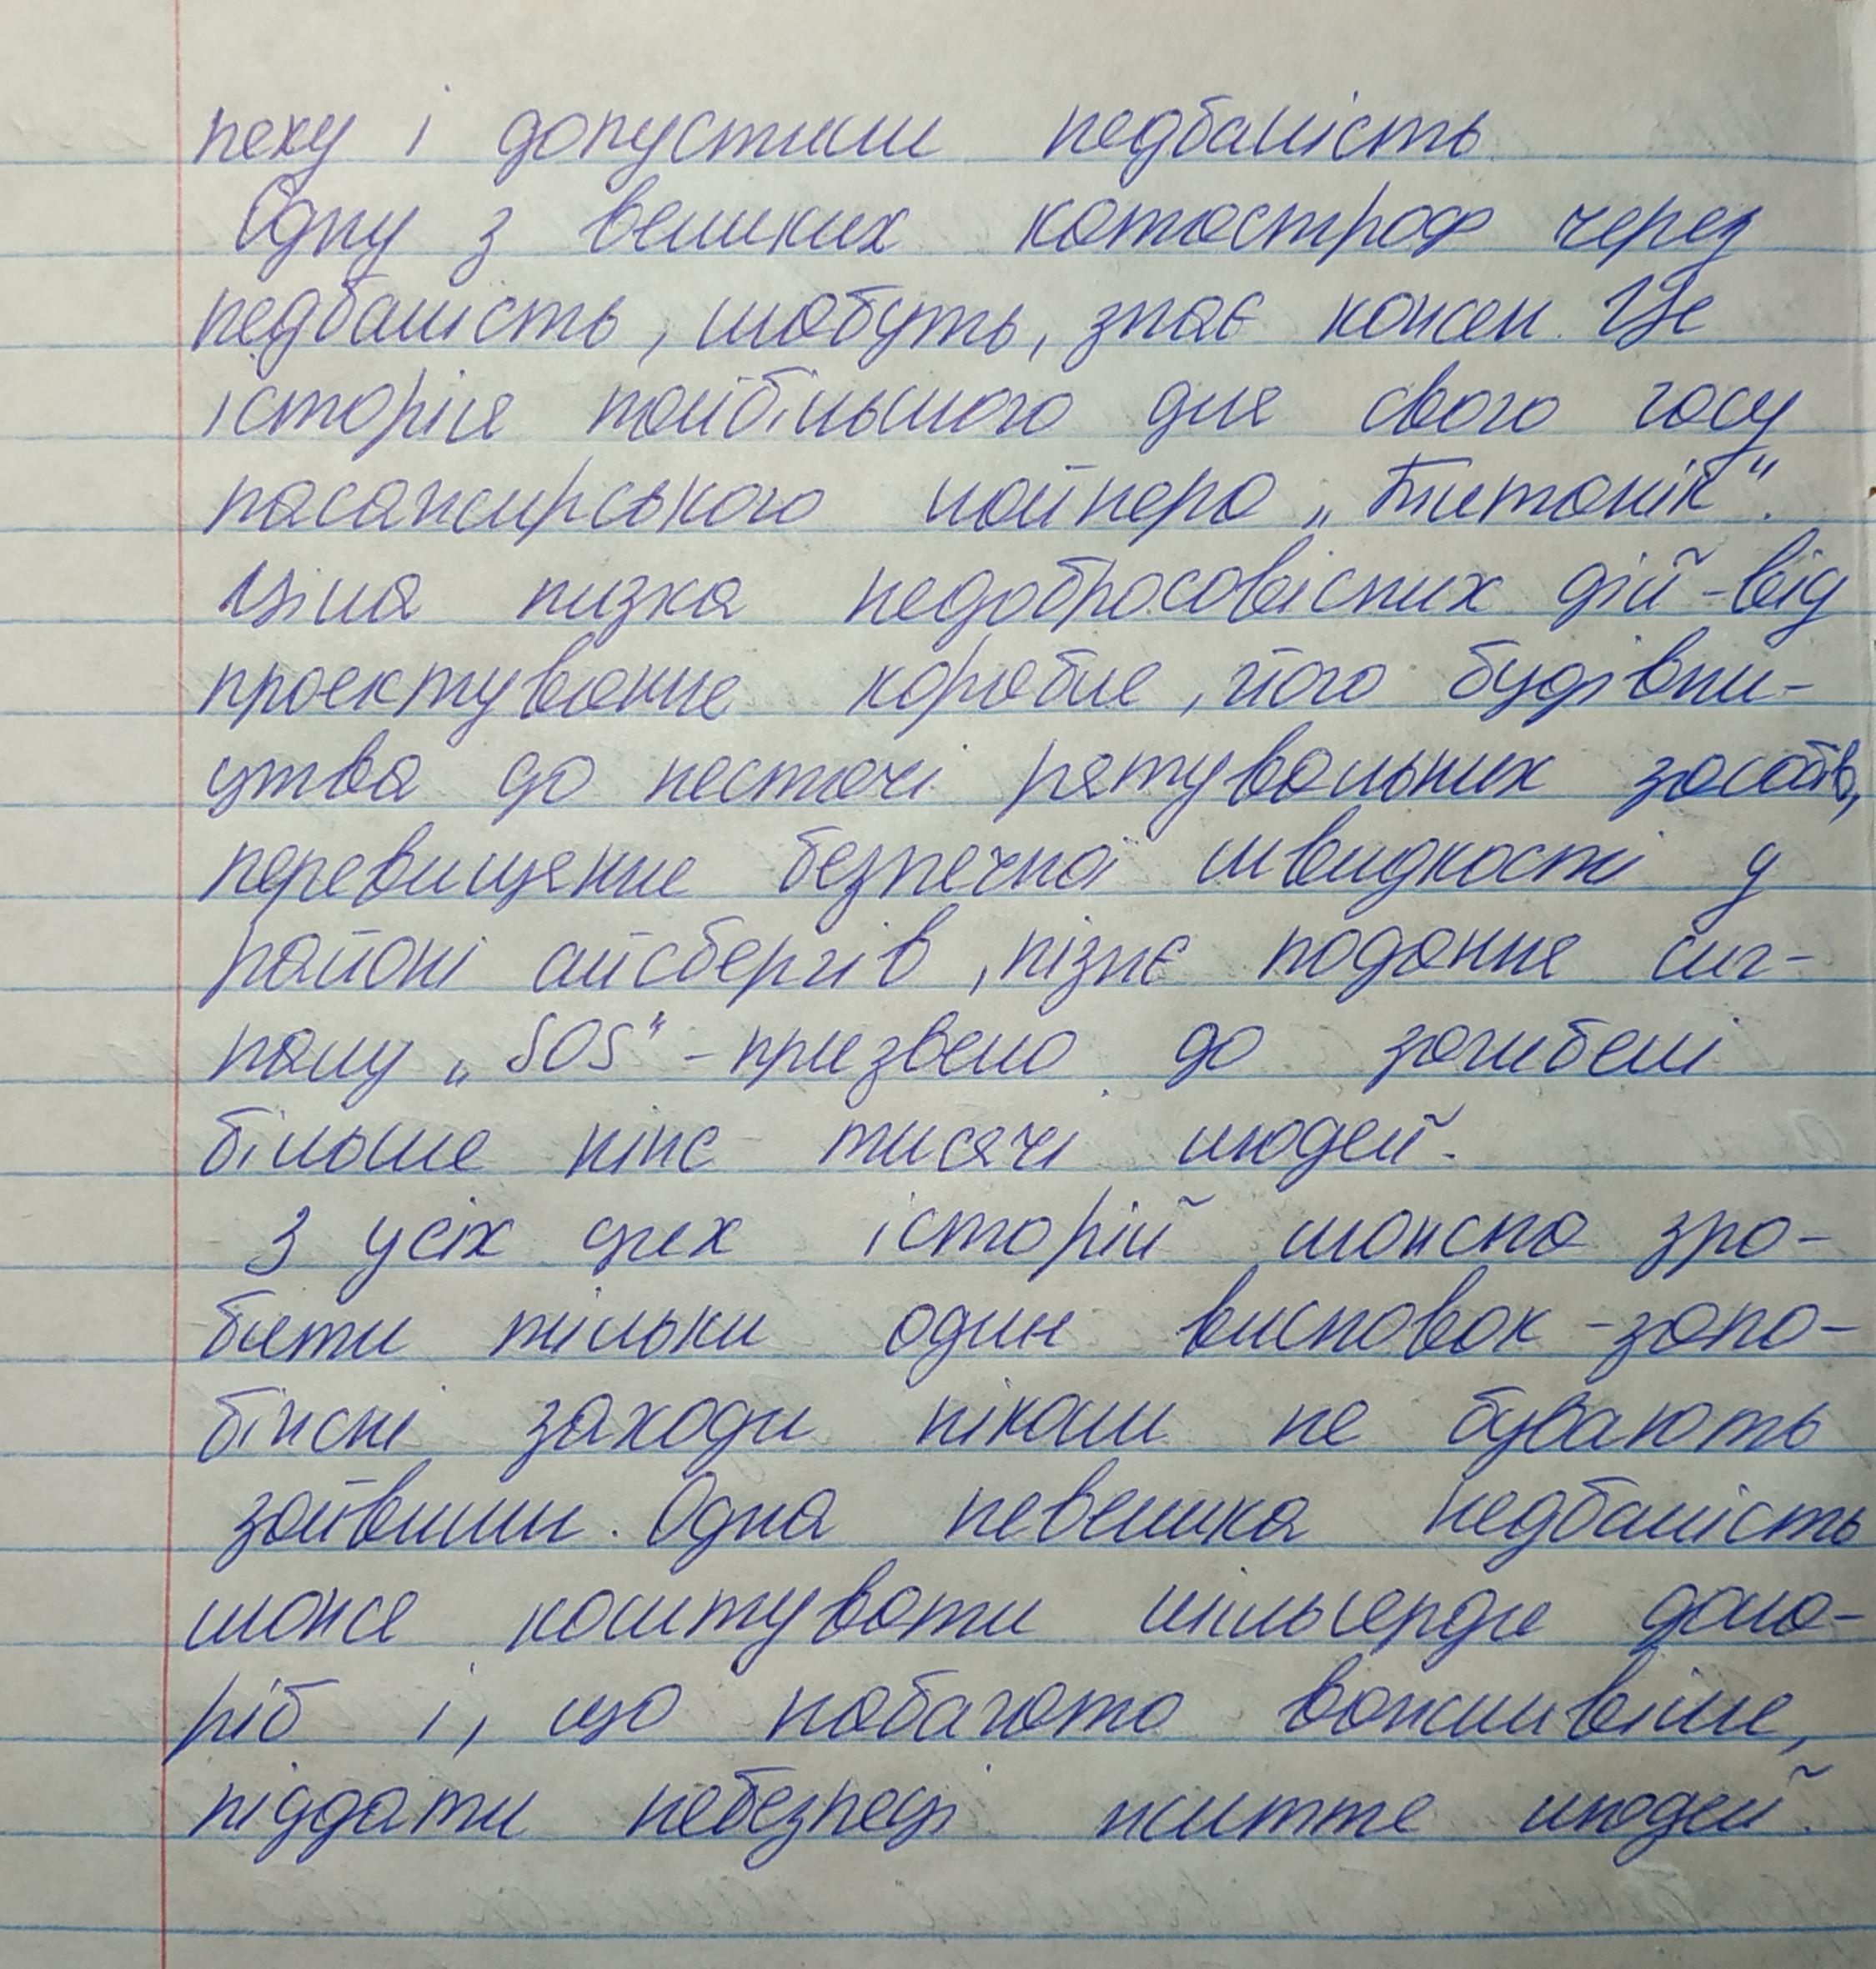 пеку і допустили недбалість.
Одну з великих катастроф через
недбалість, мабуть, знає кожен. Це
історія найбільшого для свого часу
пасажирського лайнера „Титанік".
Ціла низка недобросовісних дій - від
проектування корабля, його будівни-
цтва до нестачі рятувальних засобів,
перевищення безпечної швидкості у
районі айсбергів, пізнє подання сиг-
налу „SOS" - призвело до загибелі
більше ніж тисячі людей.
З усіх цих історій можна зро-
бити тільки один висновок - запо-
біжні заходи ніколи не бувають
зайвими. Одна невелика недбалість
може коштувати мільярди дола-
рів і, що набагато важливіше,
піддати небезпеці життя людей.